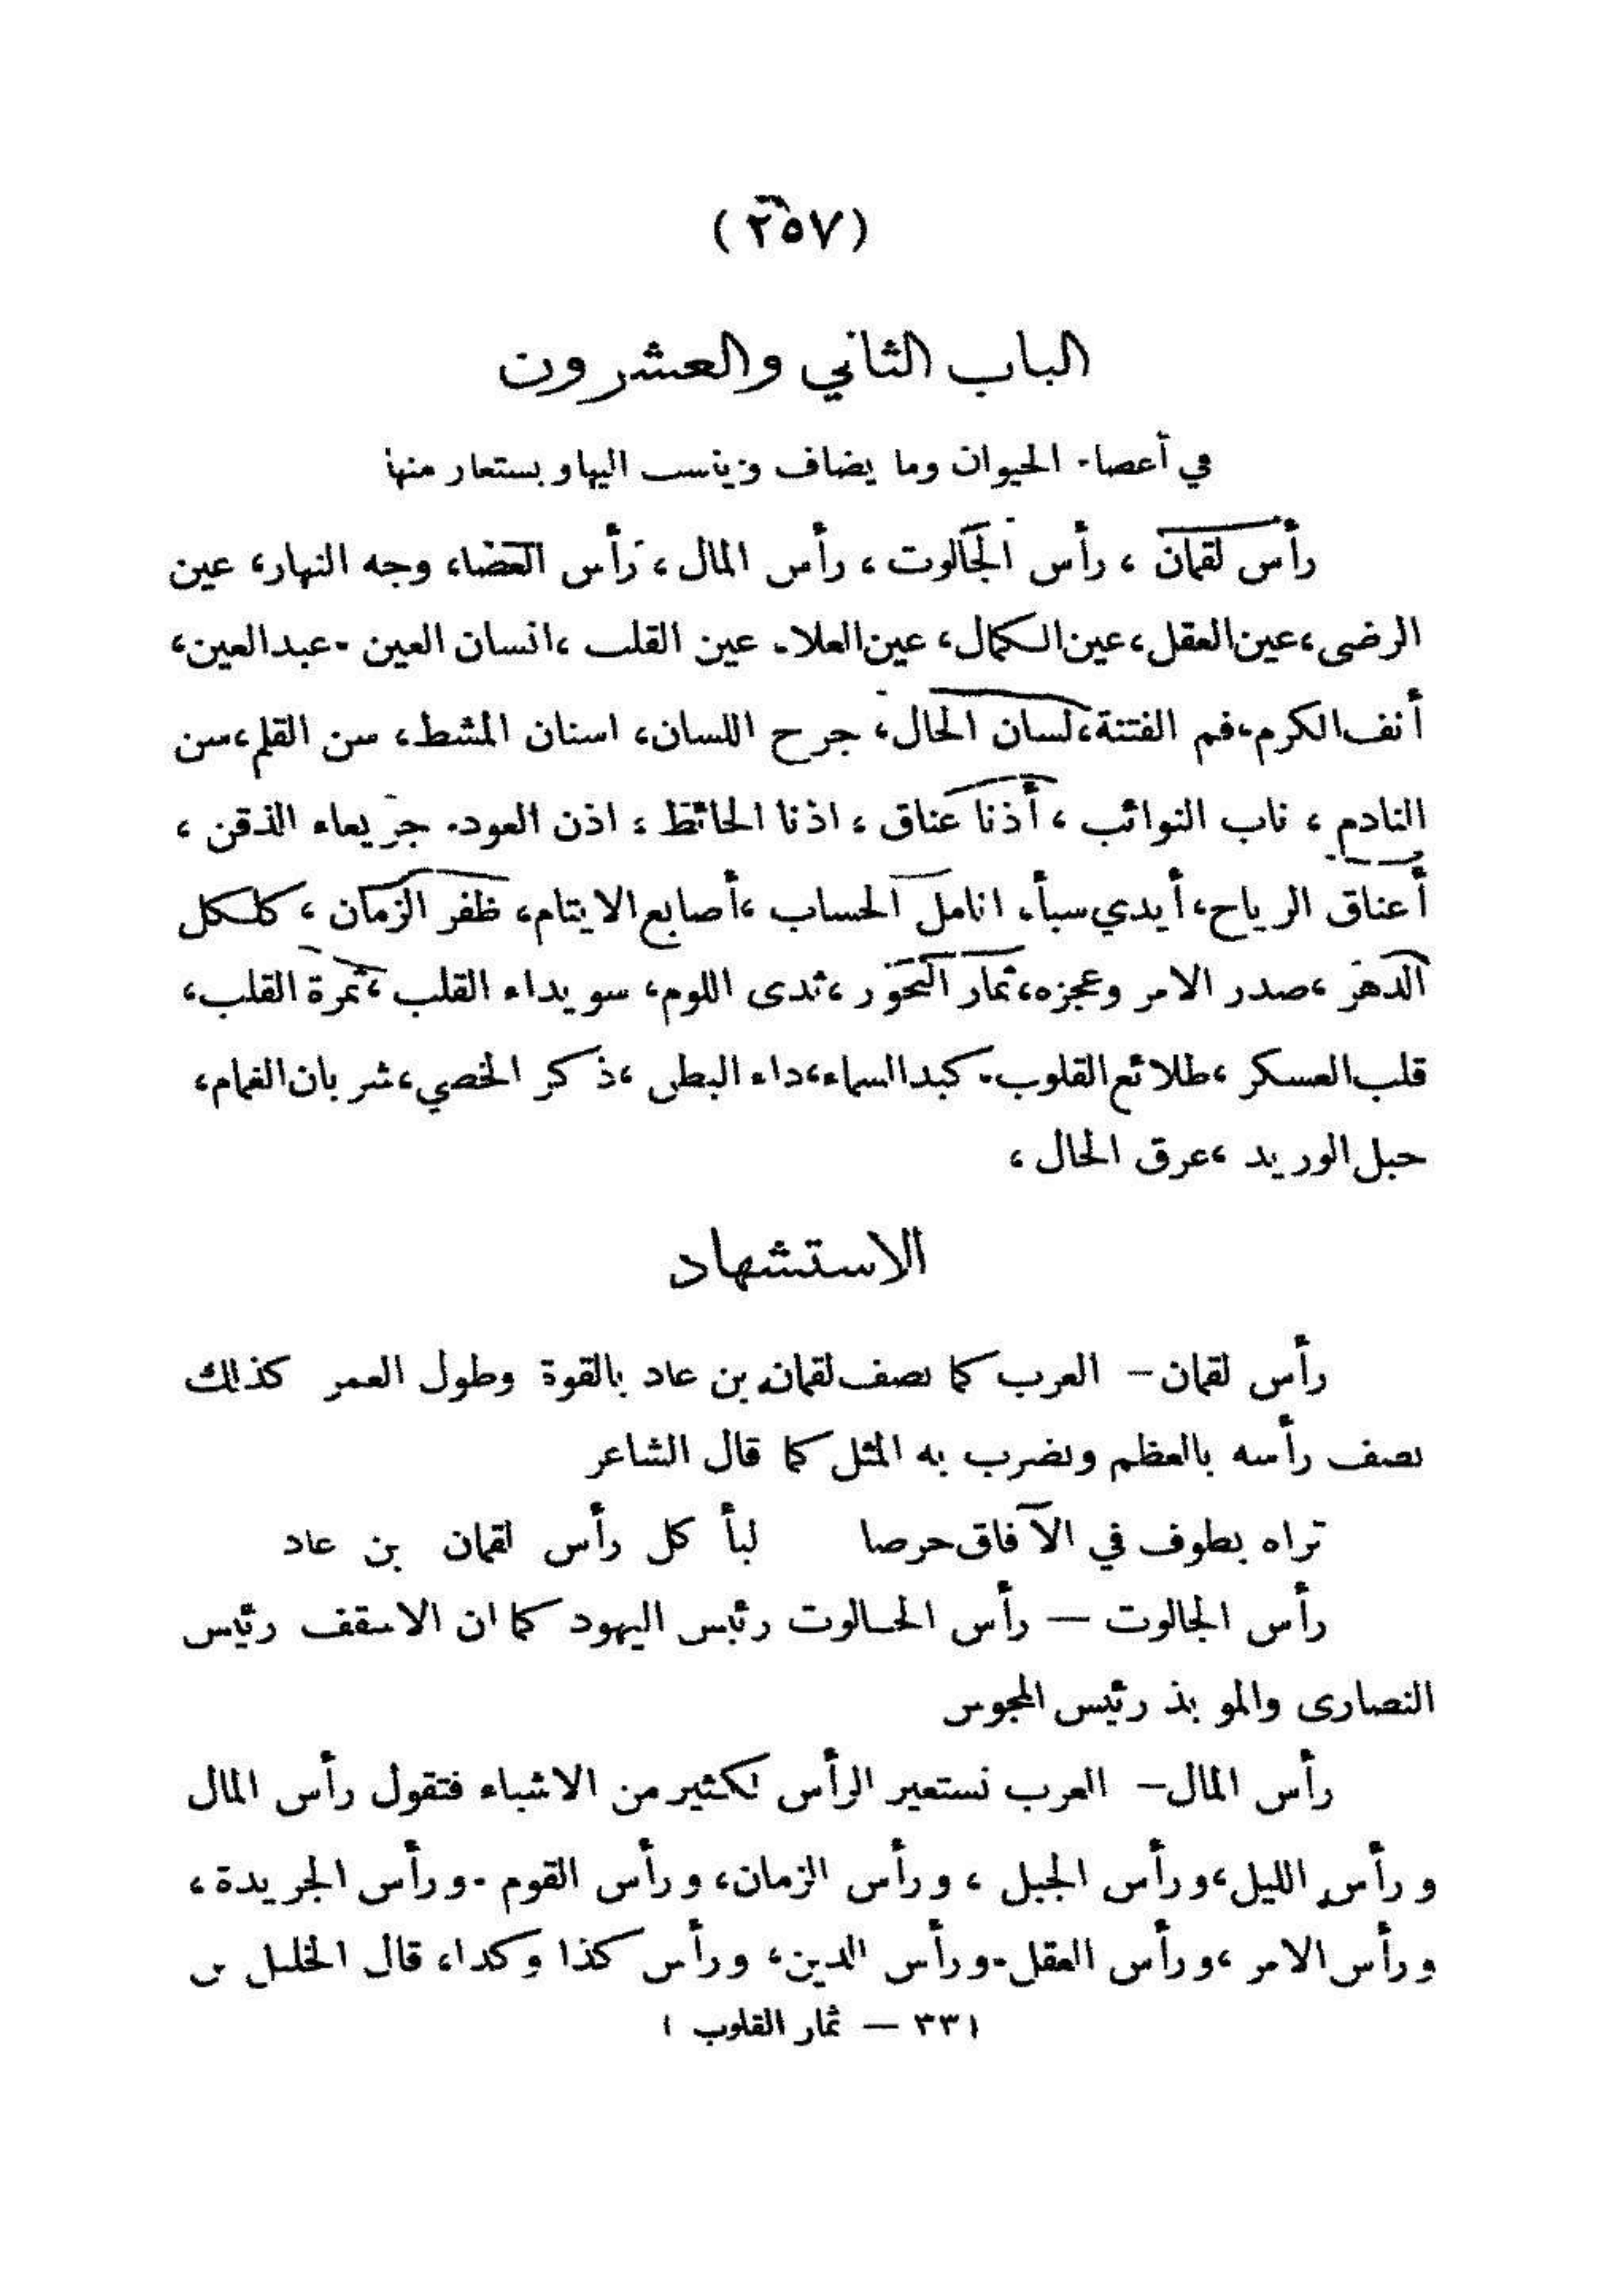 (٢٥٧)
الباب الثاني والعشرون
في أعضاء الحيوان وما يضاف وينسب اليها ويستعار منها
رأس لقمان ، رأس الجالوت ، رأس المال ، رأس العضا، وجه النهار، عين
الرضى، عين العقل، عين الكمال، عين العلاء. عين القلب ، انسان العين . عبد العين،
أنف الكرم، فم الفتنة، لسان الحال، جرح اللسان، اسنان المشط، سن القلم، سن
النادم ، ناب النوائب ، أذنا عناق ، اذنا الحائط ، اذن العود. جريعاء الذقن ،
أعناق الرياح، أيدي سبأ، انامل الحساب ، أصابع الايتام، ظفر الزمان ، كلكل
الدهر ، صدر الامر وعجزه، ثمار النحور ، ثدى اللوم، سويداء القلب ، ثمرة القلب،
قلب العسكر ، طلائع القلوب. كبد السماء، داء البطن ، ذكر الخصي، شربان الغمام،
حبل الوريد ، عرق الخال ،
الاستشهاد
رأس لقمان – العرب كما تصف لقمان بن عاد بالقوة وطول العمر كذلك
تصف رأسه بالعظم وتضرب به المثل كما قال الشاعر
تراه يطوف في الآفاق حرصا لبأ كل رأس لقمان بن عاد
رأس الجالوت — رأس الجالوت رئيس اليهود كما ان الاسقف رئيس
النصارى والموبذ رئيس المجوس
رأس المال – العرب تستعير الرأس لكثير من الاشياء فتقول رأس المال
ورأس الليل، ورأس الجبل ، ورأس الزمان، ورأس القوم . ورأس الجريدة ،
ورأس الامر ، ورأس العقل. ورأس الدين، ورأس كذا وكذا، قال الخليل
(٣٣ — ثمار القلوب )